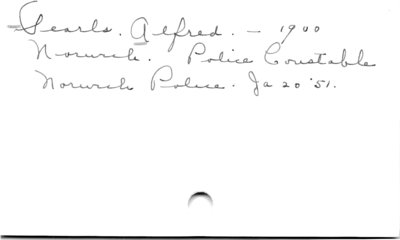 Searls. Alfred. - 1900
Norwich. Police Constable
Norwich Police. Ja 20 '51.